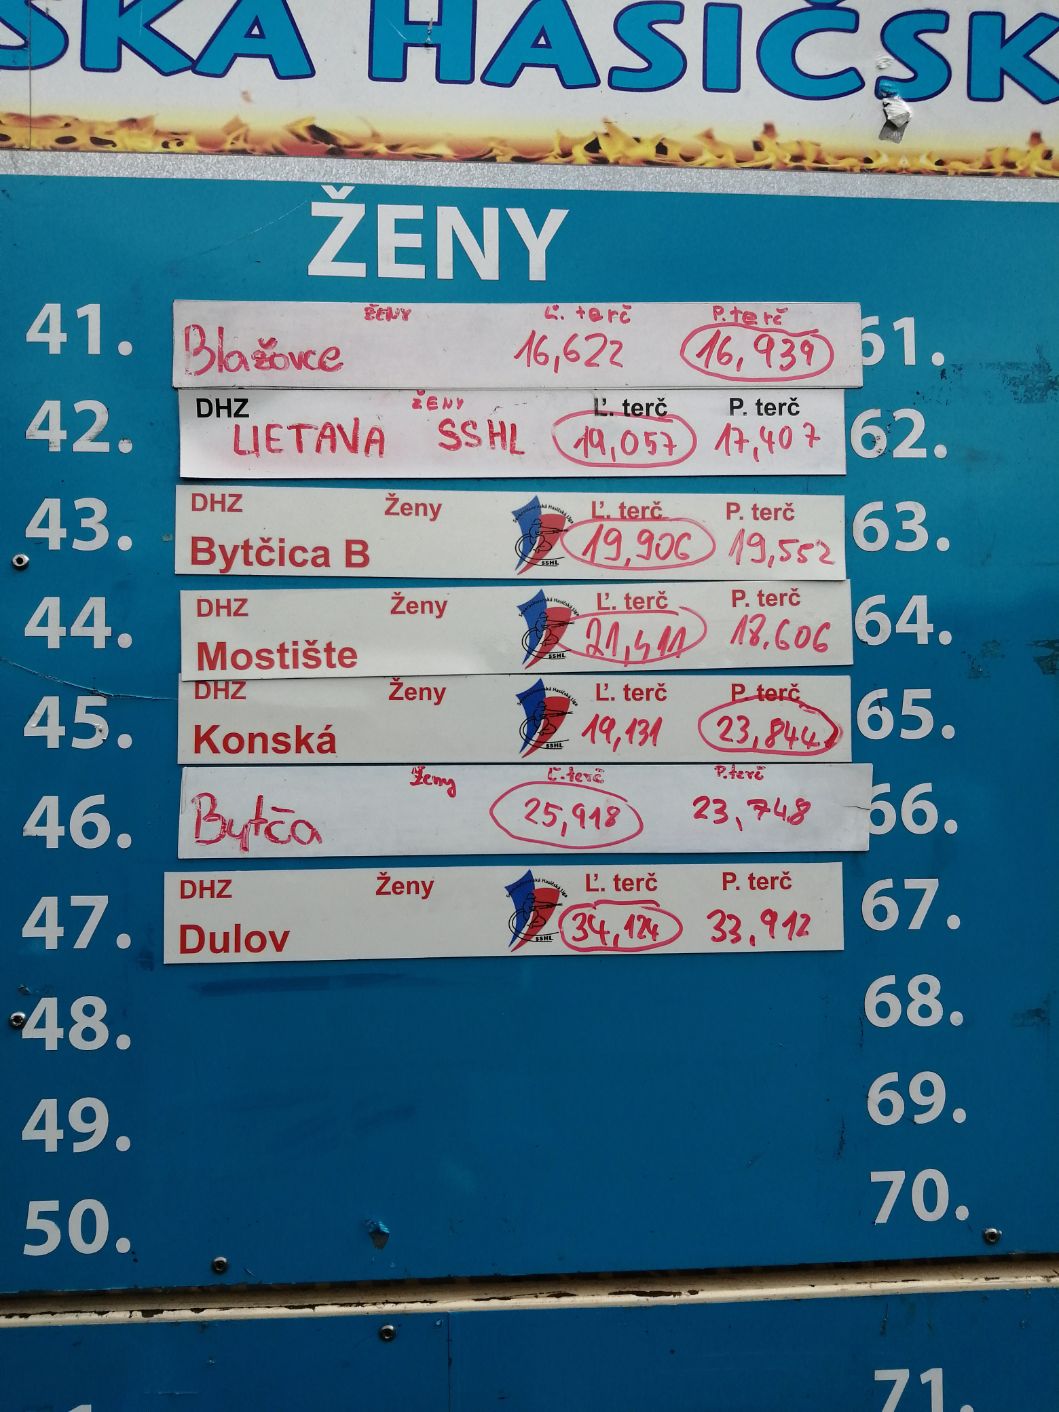 SKA HASIČSK
ŽENY
41. Blažovce ŽENY Ľ. terč 16,622 P. terč 16,939 61.
42. DHZ LIETAVA ŽENY SSHL Ľ. terč 19,057 P. terč 17,407 62.
43. DHZ Bytčica B Ženy Ľ. terč 19,906 P. terč 19,552 63.
44. DHZ Mostište Ženy Ľ. terč 21,411 P. terč 18.606 64.
45. DHZ Konská Ženy Ľ. terč 19,131 P. terč 23,844 65.
46. Bytča Ženy Ľ. terč 25,918 P. terč 23,748 66.
47. DHZ Dulov Ženy SSHL Ľ. terč 34,124 P. terč 33,912 67.
48. 68.
49. 69.
50. 70.
71.